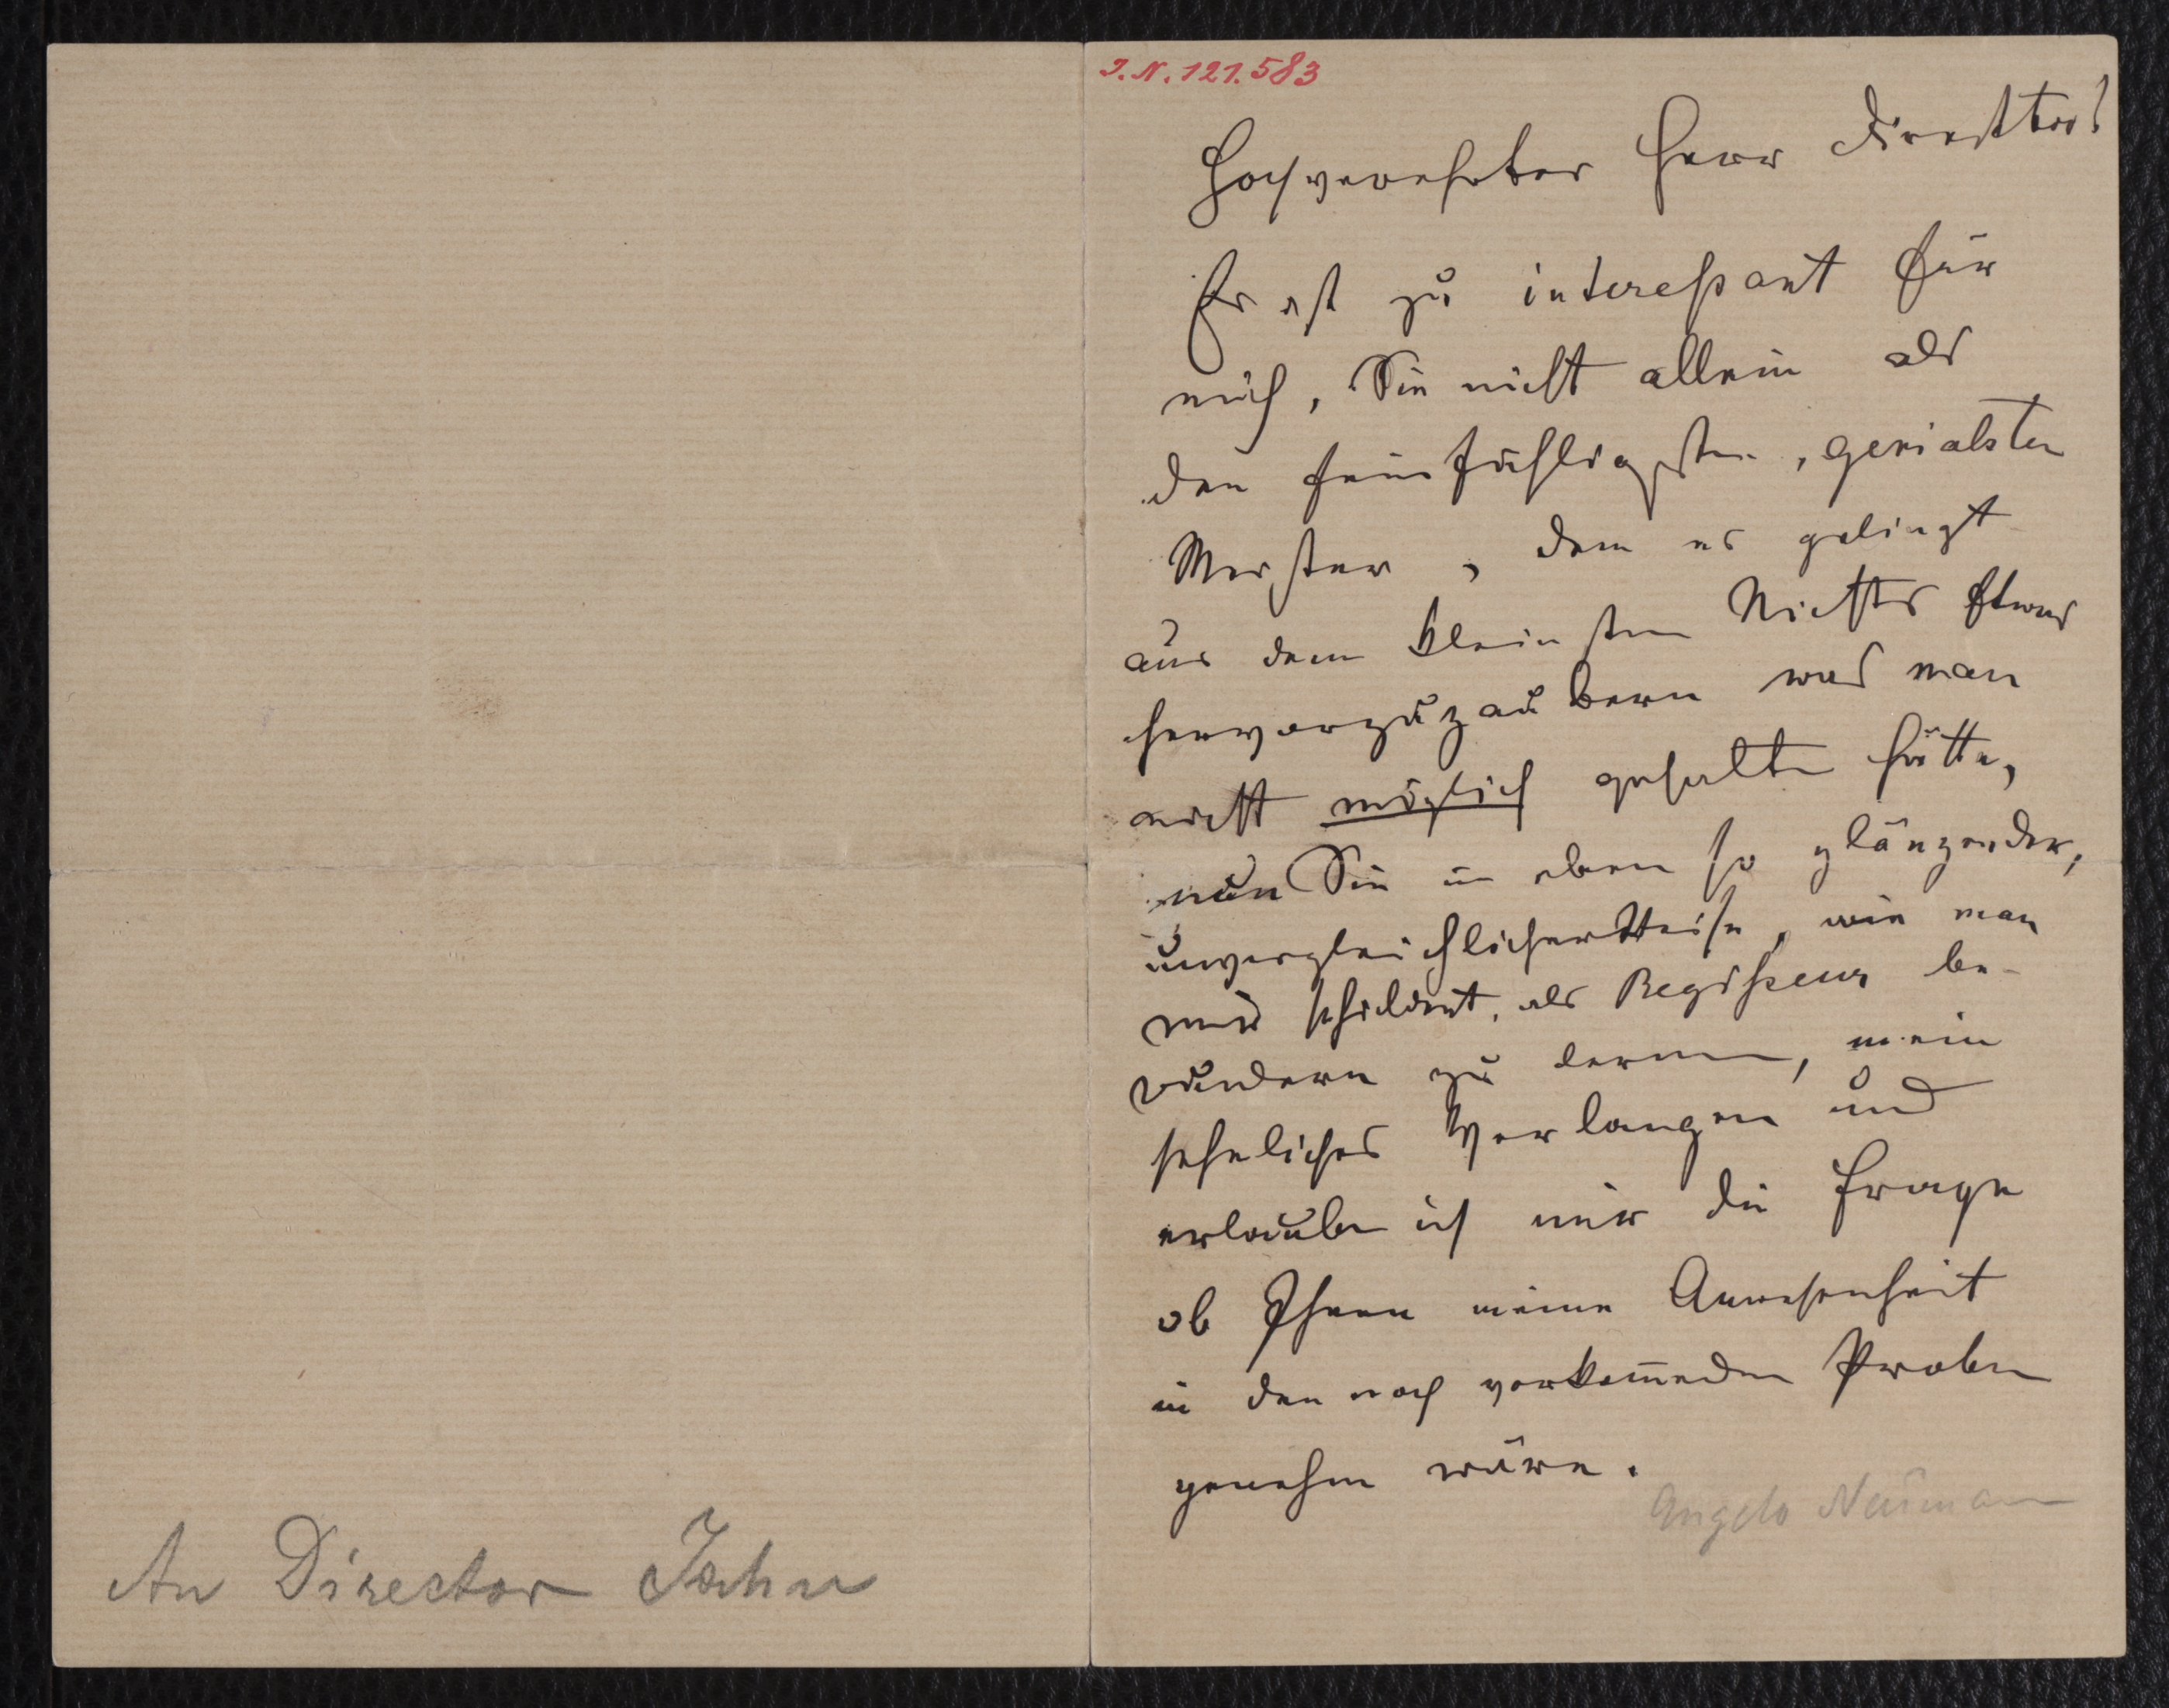 An Director Jahn
J. N. 121.583
Hochverehrter Herr Direktor!
Er ist zu interessant für
mich, Sie nicht allein als
den feinfühligsten, genialsten
Meister, dem es gelingt
aus dem kleinsten Nichts Etwas
hervorzuzaubern was man
nicht möglich gehalten hätte,
nun Sie in eben so glänzender,
unvergleichlicher Weise, wie man
mir schildert, als Regisseur be-
wundern zu lernen, mein
sehnliches Verlangen und
erlaube ich mir die Frage
ob Ihnen meine Anwesenheit
in den noch vorkom̄enden Proben
genehm wäre.
Angelo Neumann